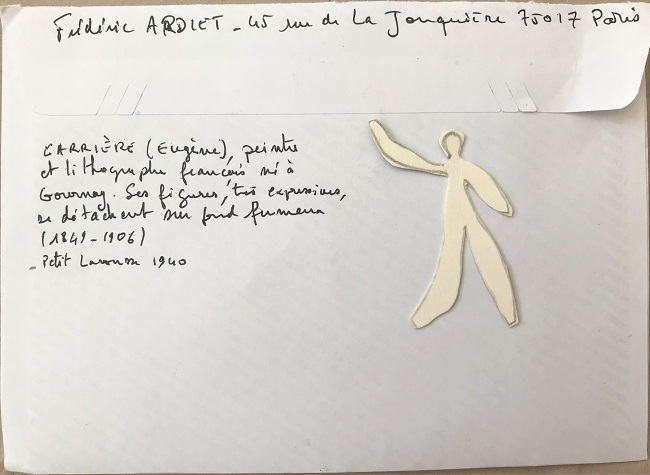 Frédéric ARDIET - 45 rue de La Jonquière 75017 Paris
CARRIÈRE (Eugène), peintre
et lithographe français né à
Gournay. Ses figures, très expressives,
se détachent sur fond fumeux
(1849-1906)
- Petit Larousse 1940